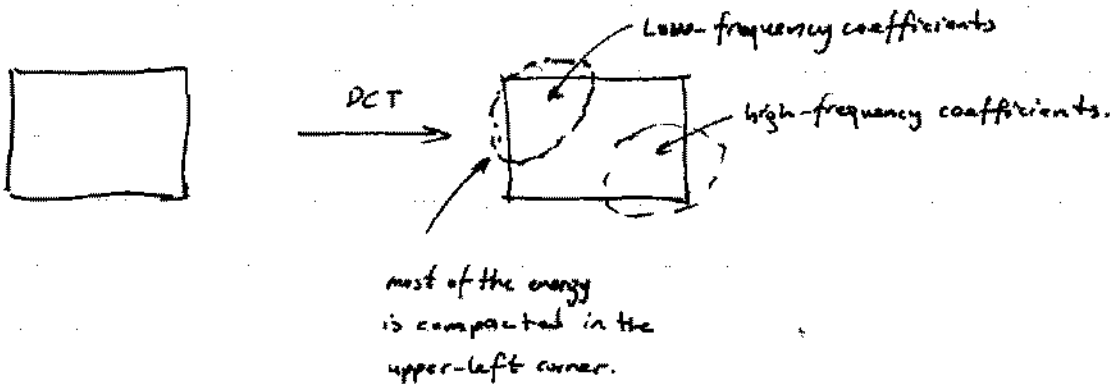 Low-frequency coefficients
DCT
high-frequency coefficients.
most of the energy
is compacted in the
upper-left corner.